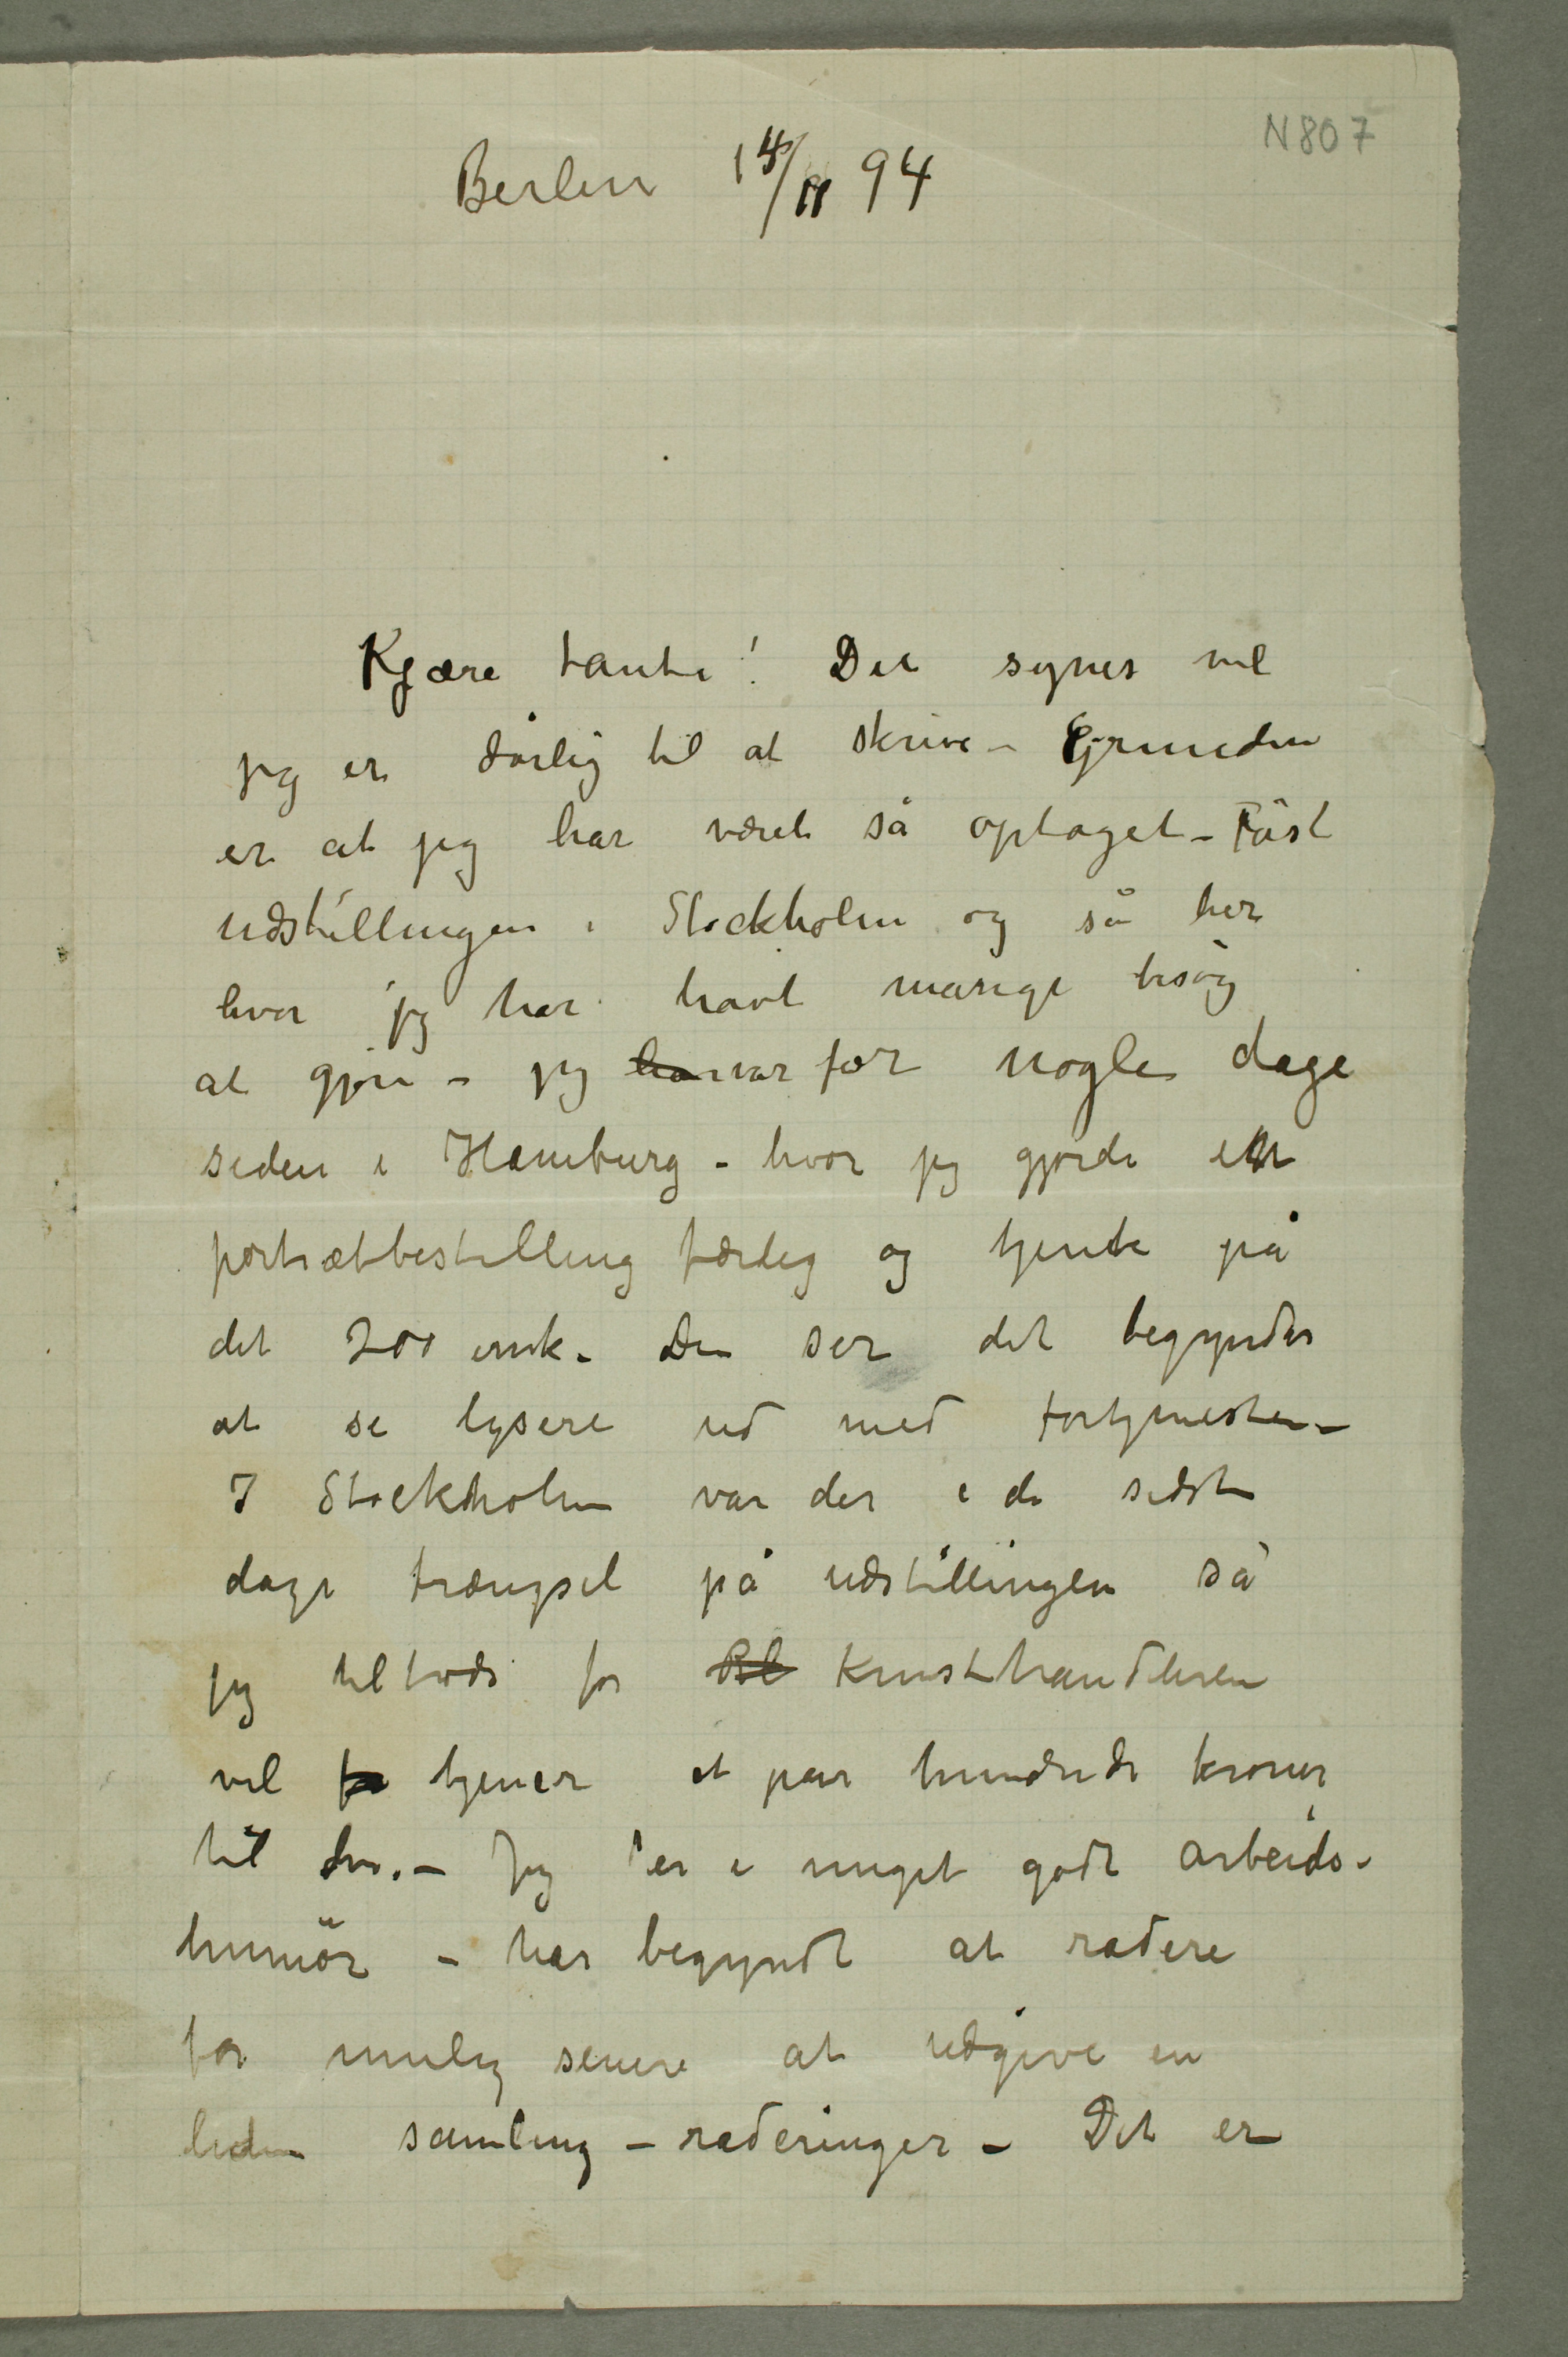 N 807
Berlin 14/11 94
Kjære tante! Du synes vel
jeg er dårlig til at skrive – Grunden
er at jeg har været så optaget – Föst
udstillingen i Stockholm og så her
hvor jeg har havt mange besög
at gjöre – jeg har var for nogle dage
siden i Hamburg – hvor jeg gjorde en
portrætbestilling færdig og tjente på
det 200 mk. Du ser det begynder
at se lysere ud med fortjenesten –
I Stockholm var der i de sidste
dage trængsel på udstillingen så
jeg tiltrods for Bl kunsthandleren
vel fo tjener et par hundrede kroner
til der. – Jeg er i meget godt arbeids-
humör – har begyndt at radere
for mulig senere at udgive en
liden samling – raderinger – Det er